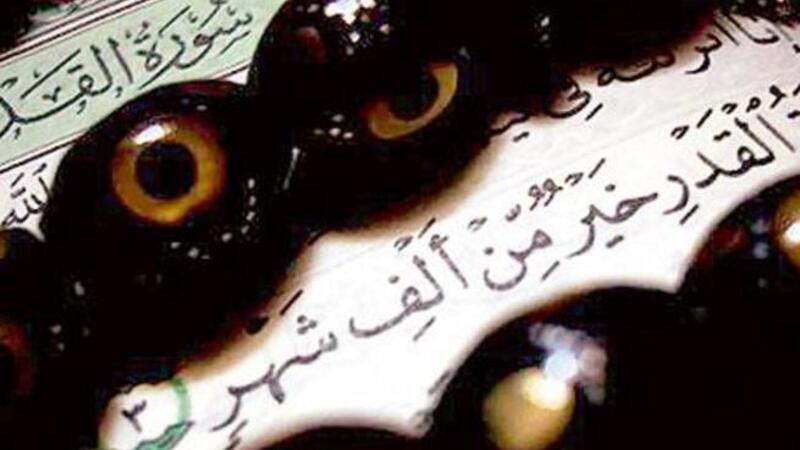 سُورَةُ القَد
إِنَّا أَنزَلْنَٰهُ فِى لَي
اللَّهِ
الْقَدْرِ خَيْرٌ مِّنْ أَلْفِ شَهْرٍ ٣